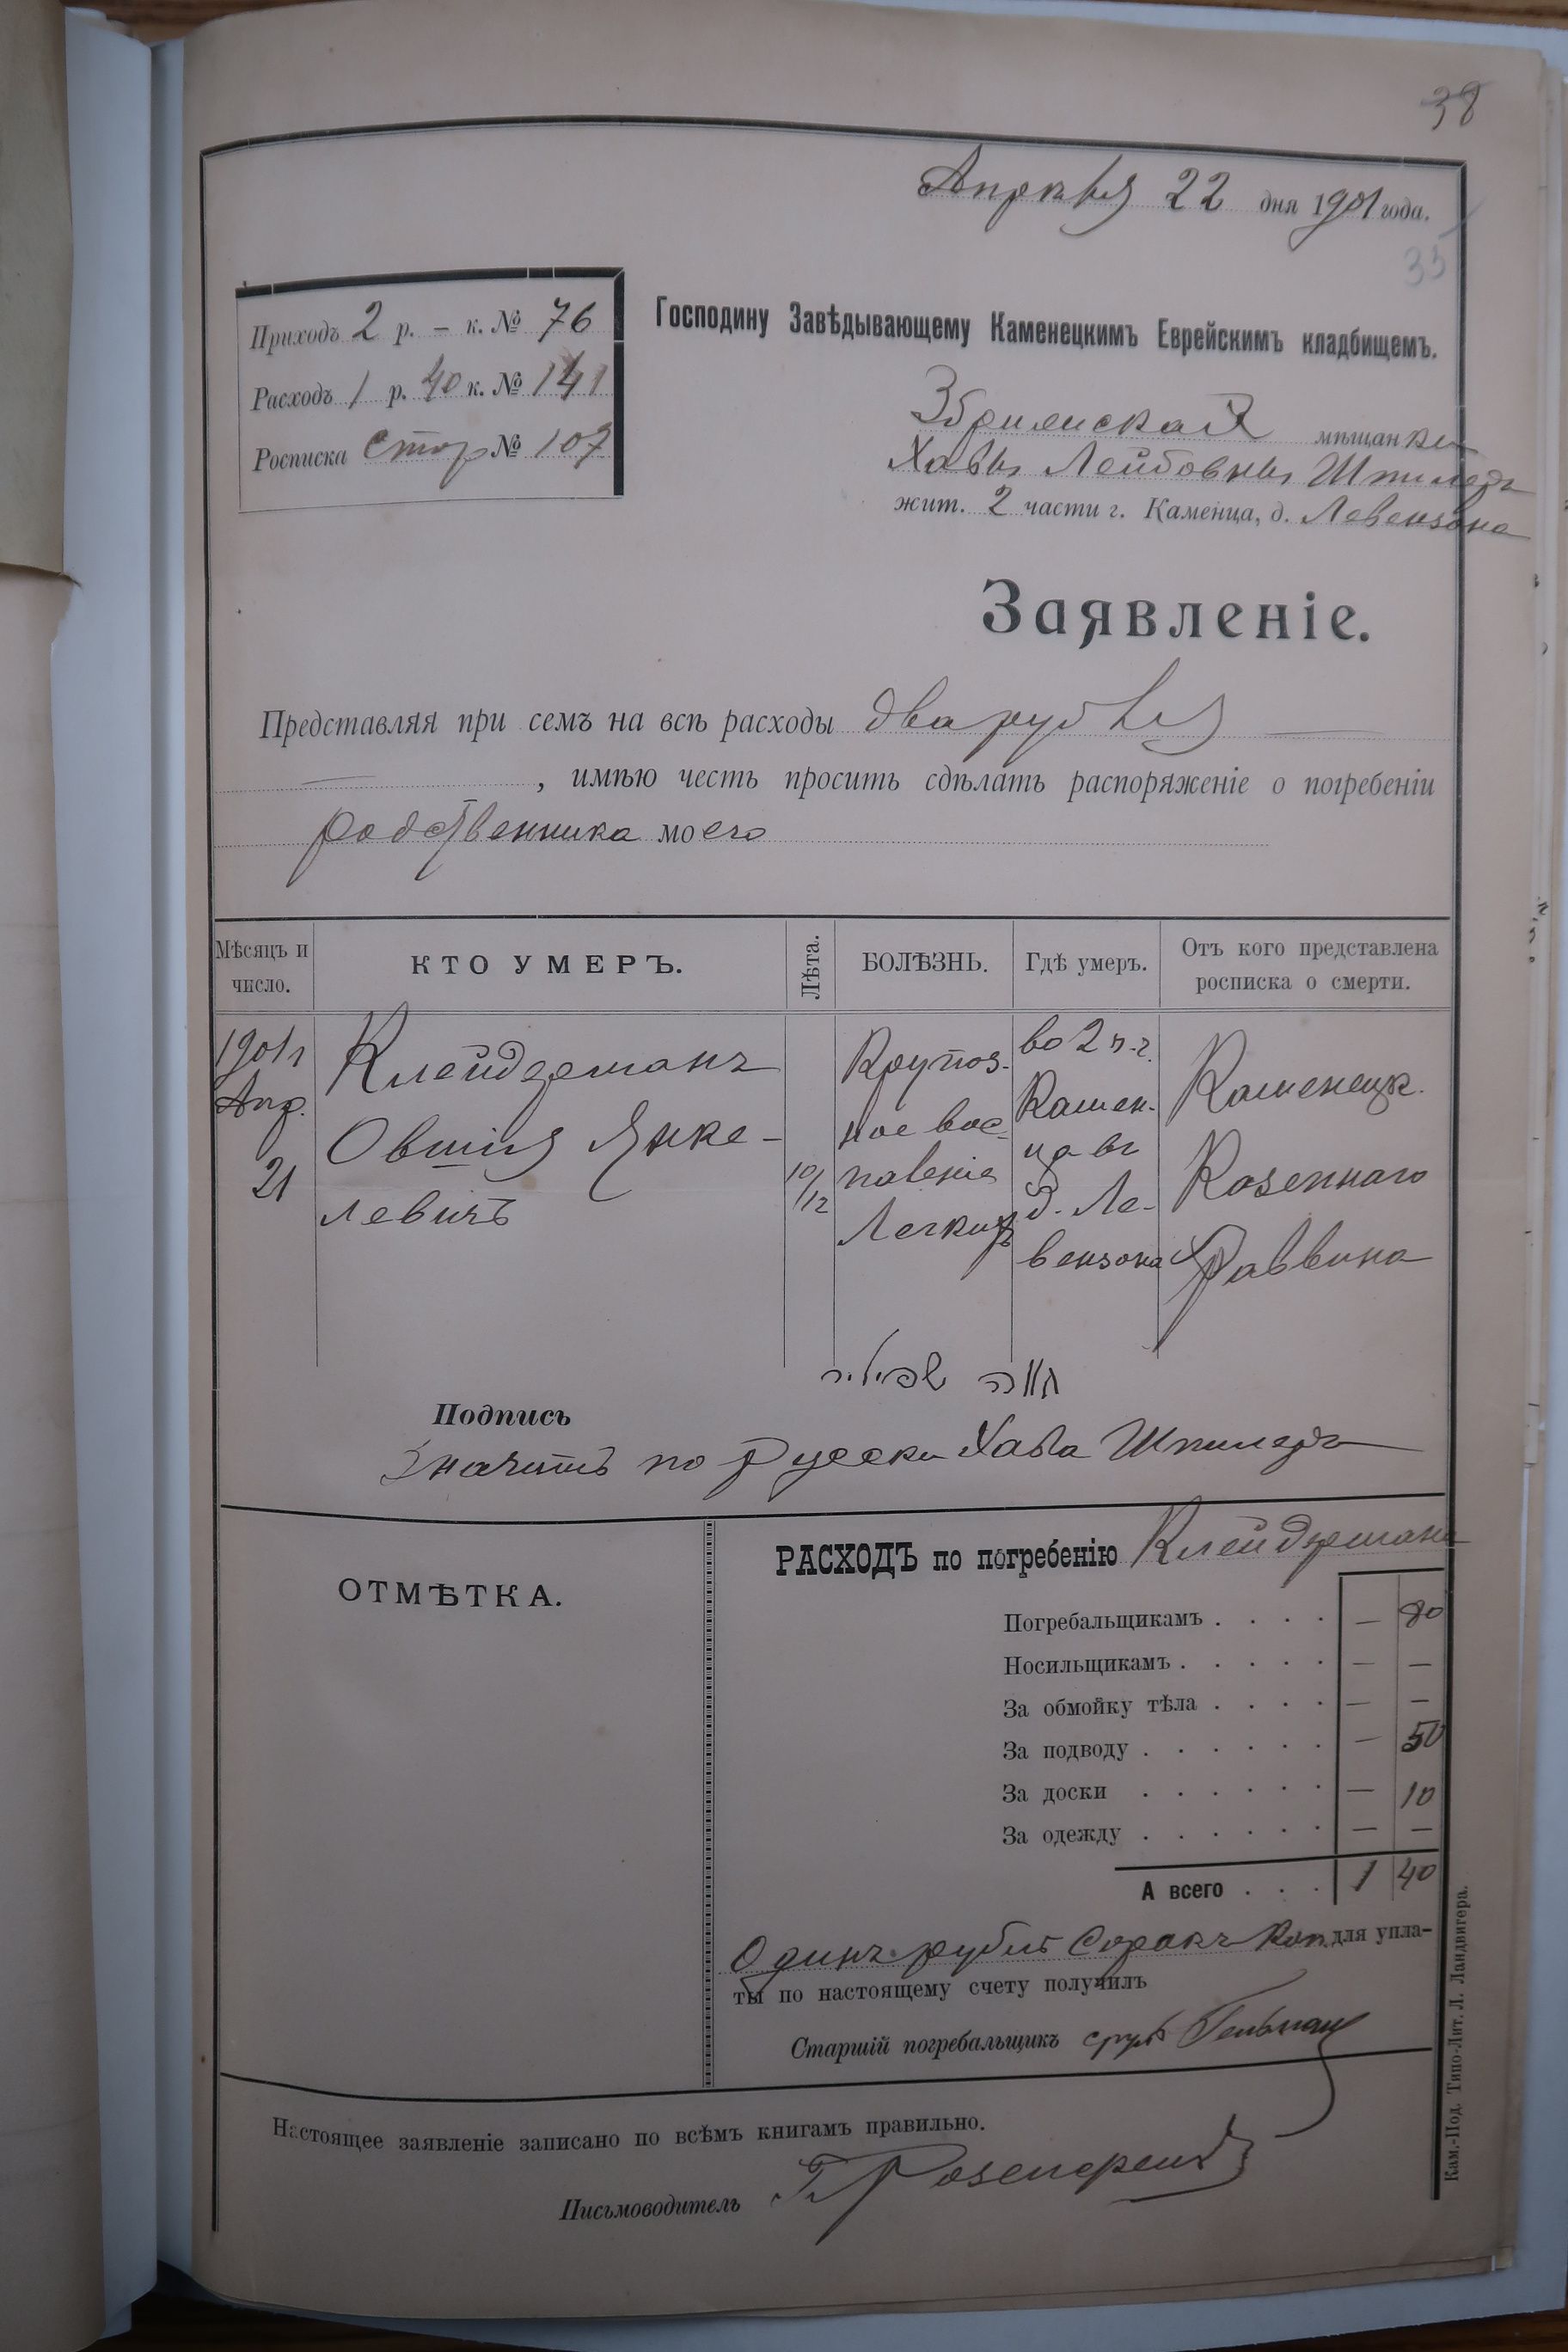 38
Апрѣля 22 дня 1901 года.
35
Приходъ 2 р. – к. № 76
Расходъ 1 р. 40 к. № 141
Росписка стор № 107
Господину Завѣдывающему Каменецкимъ Еврейскимъ кладбищемъ.
мѣщанки
Хавы Лейбовны Шпилеръ
жит. 2 части г. Каменца, д. Левензона
Заявленіе.
Представляя при семъ на всѣ расходы два рубля —
— , имѣю честь просить сдѣлать распоряженіе о погребеніи
родственника моего
Мѣсяцъ и число.
КТО УМЕРЪ.
Лѣта.
БОЛѢЗНЬ.
Гдѣ умеръ.
Отъ кого представлена росписка о смерти.
1901 г
Апр.
21
Клейдерманъ
Овшія Янке-
левичъ
10/12
Крупоз-
ное вос-
паленіе
Легкихъ
во 2 ч. г.
Камен-
ца въ
д. Ле-
вензона
Каменецк.
Казеннаго
Раввина
חוה שפילער
Подпись
Значитъ по Русски Хава Шпилеръ
ОТМѢТКА.
РАСХОДЪ по погребенію Клейдермана
Погребальщикамъ . . . . — 80
Носильщикамъ . . . . . — —
За обмойку тѣла . . . . — —
За подводу . . . . . . — 50
За доски . . . . . . — 10
За одежду . . . . . . — —
А всего . . . 1 40
Одинъ рубль Сорокъ коп. для упла-
ты по настоящему счету получилъ
Старшій погребальщикъ сруль Гельман
Настоящее заявленіе записано по всѣмъ книгамъ правильно.
Письмоводитель
Кам.-Под. Типо-Лит. Л. Ландвигера.